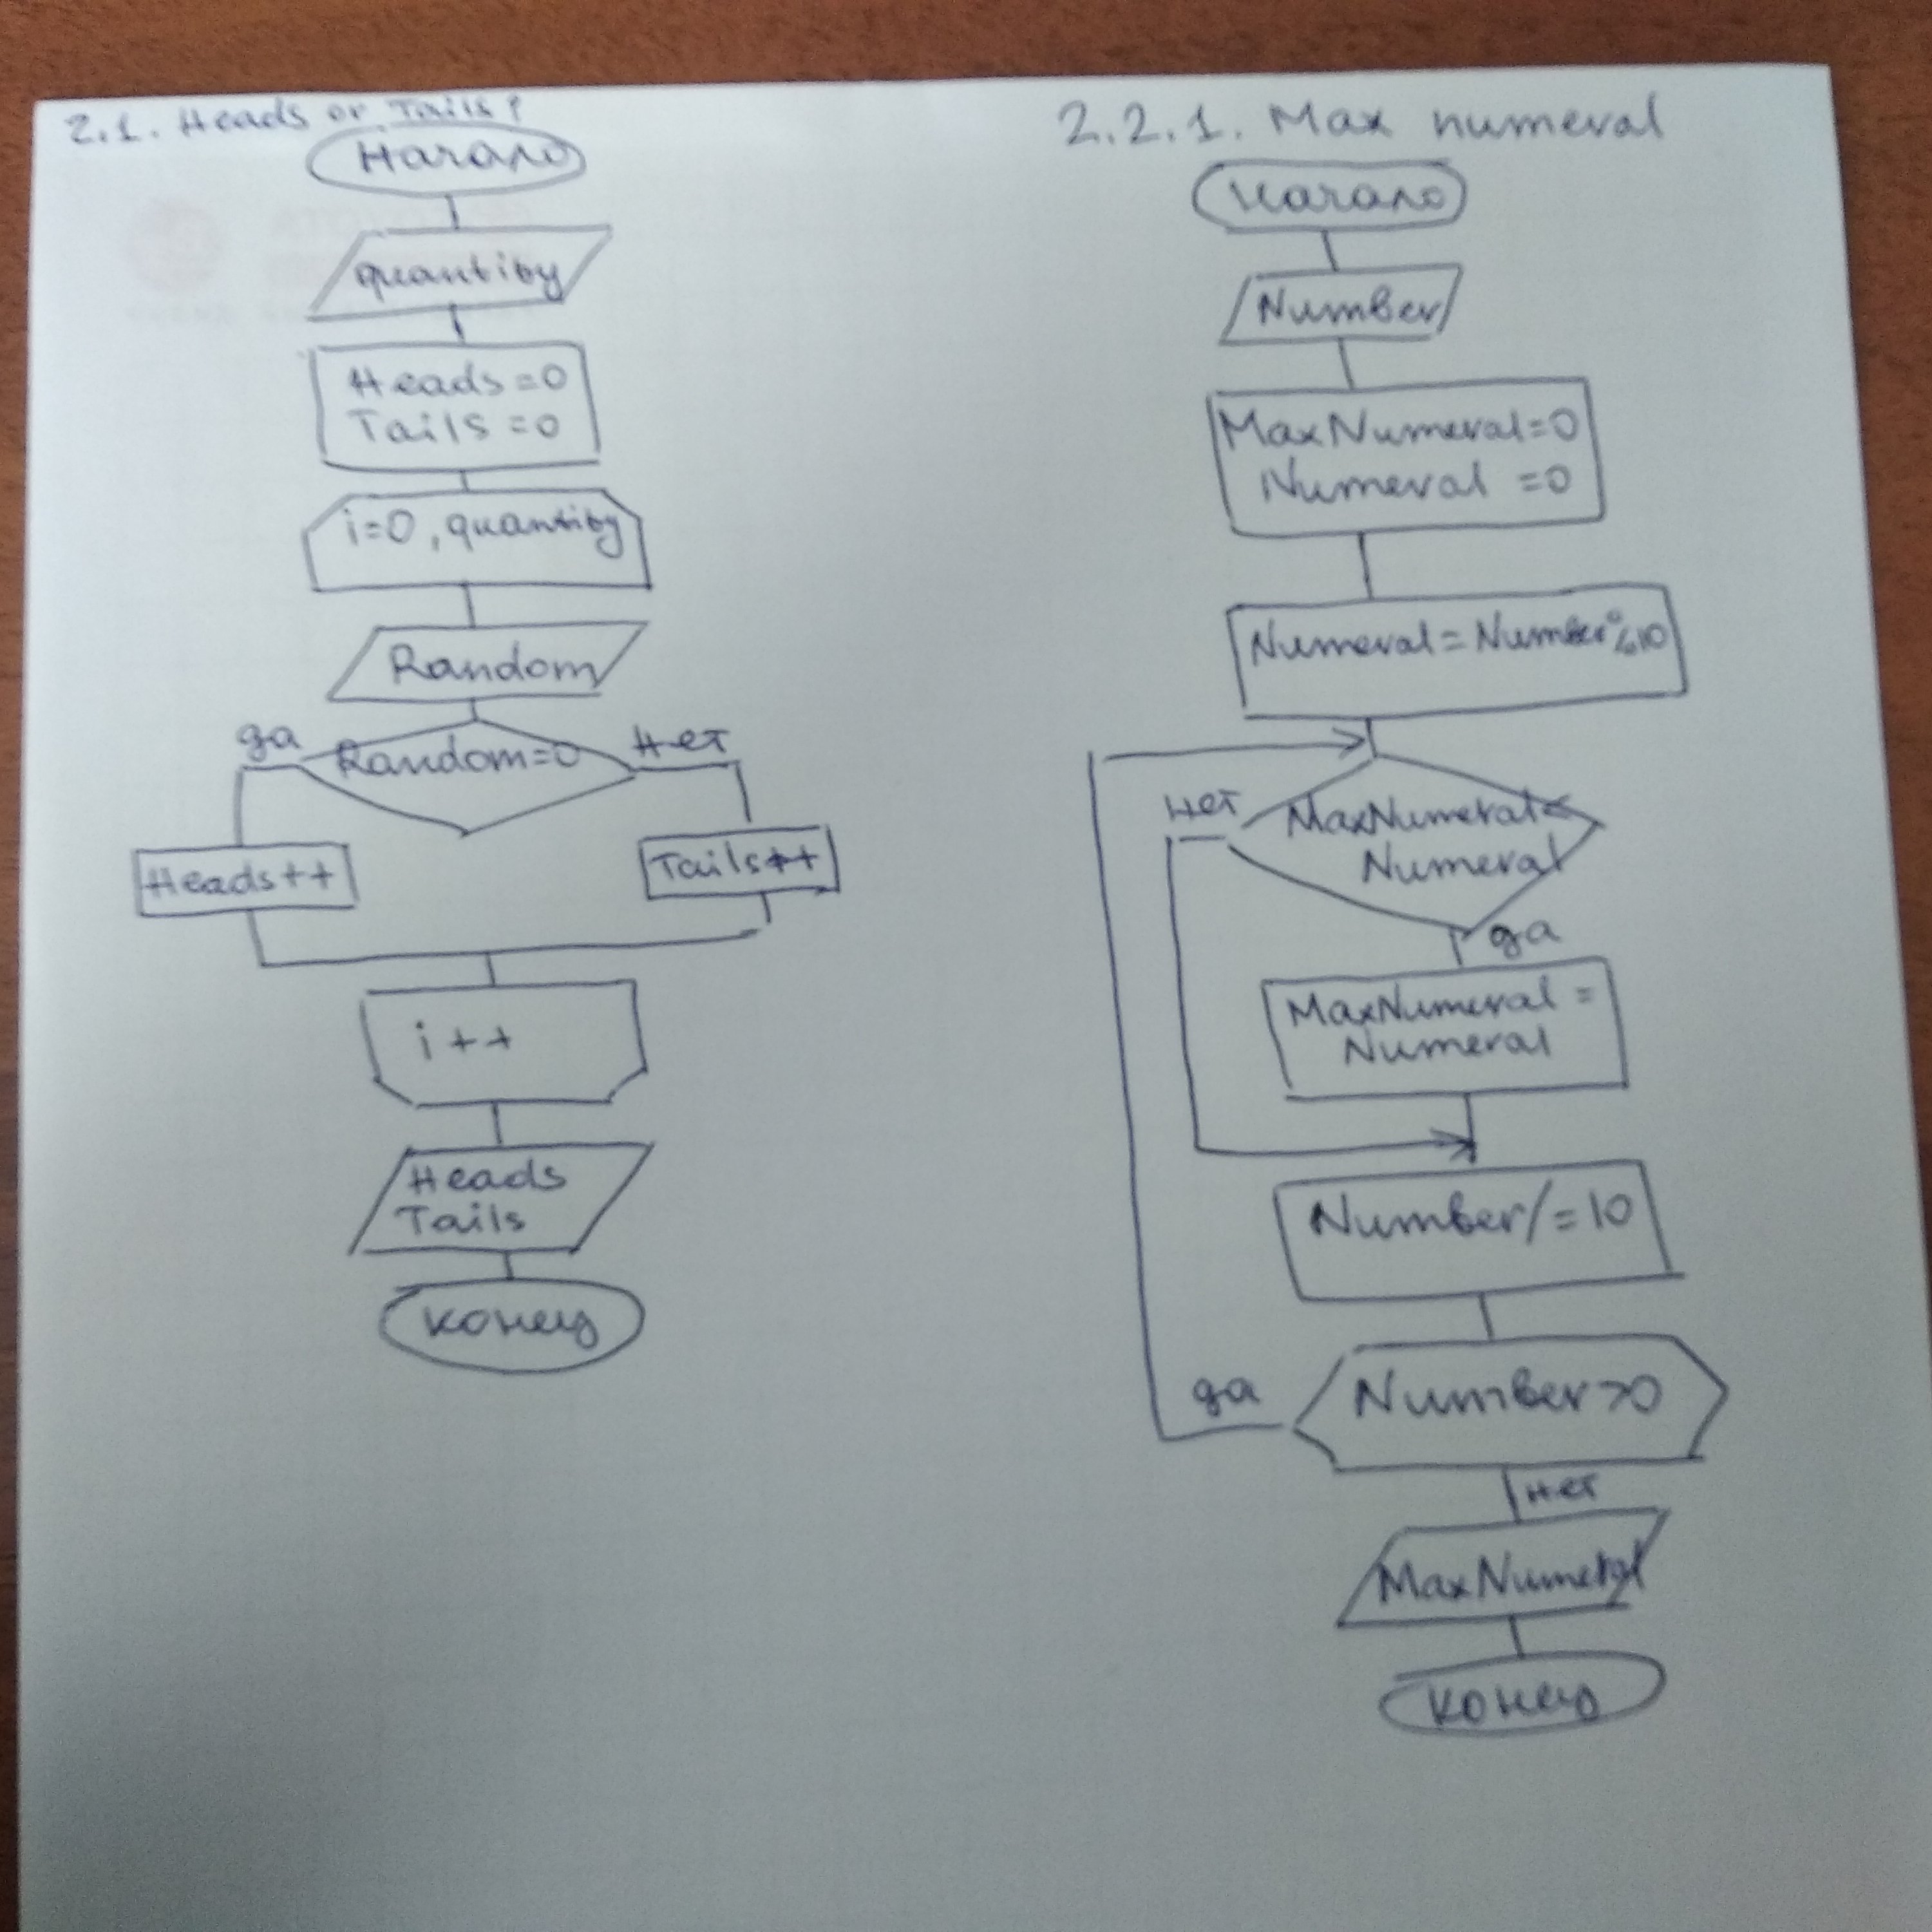 2.1. Heads or Tails?
Начало
quantity
Heads=0
Tails=0
i=0, quantity
Random
да
Random=0
нет
Heads++
Tails++
i++
Heads
Tails
конец
2.2.1. Max numeral
Начало
Number
MaxNumeral=0
Numeral=0
Numeral=Number%10
нет
MaxNumeral<
Numeral
да
MaxNumeral=
Numeral
Number/=10
да
Number>0
нет
MaxNumeral
конец